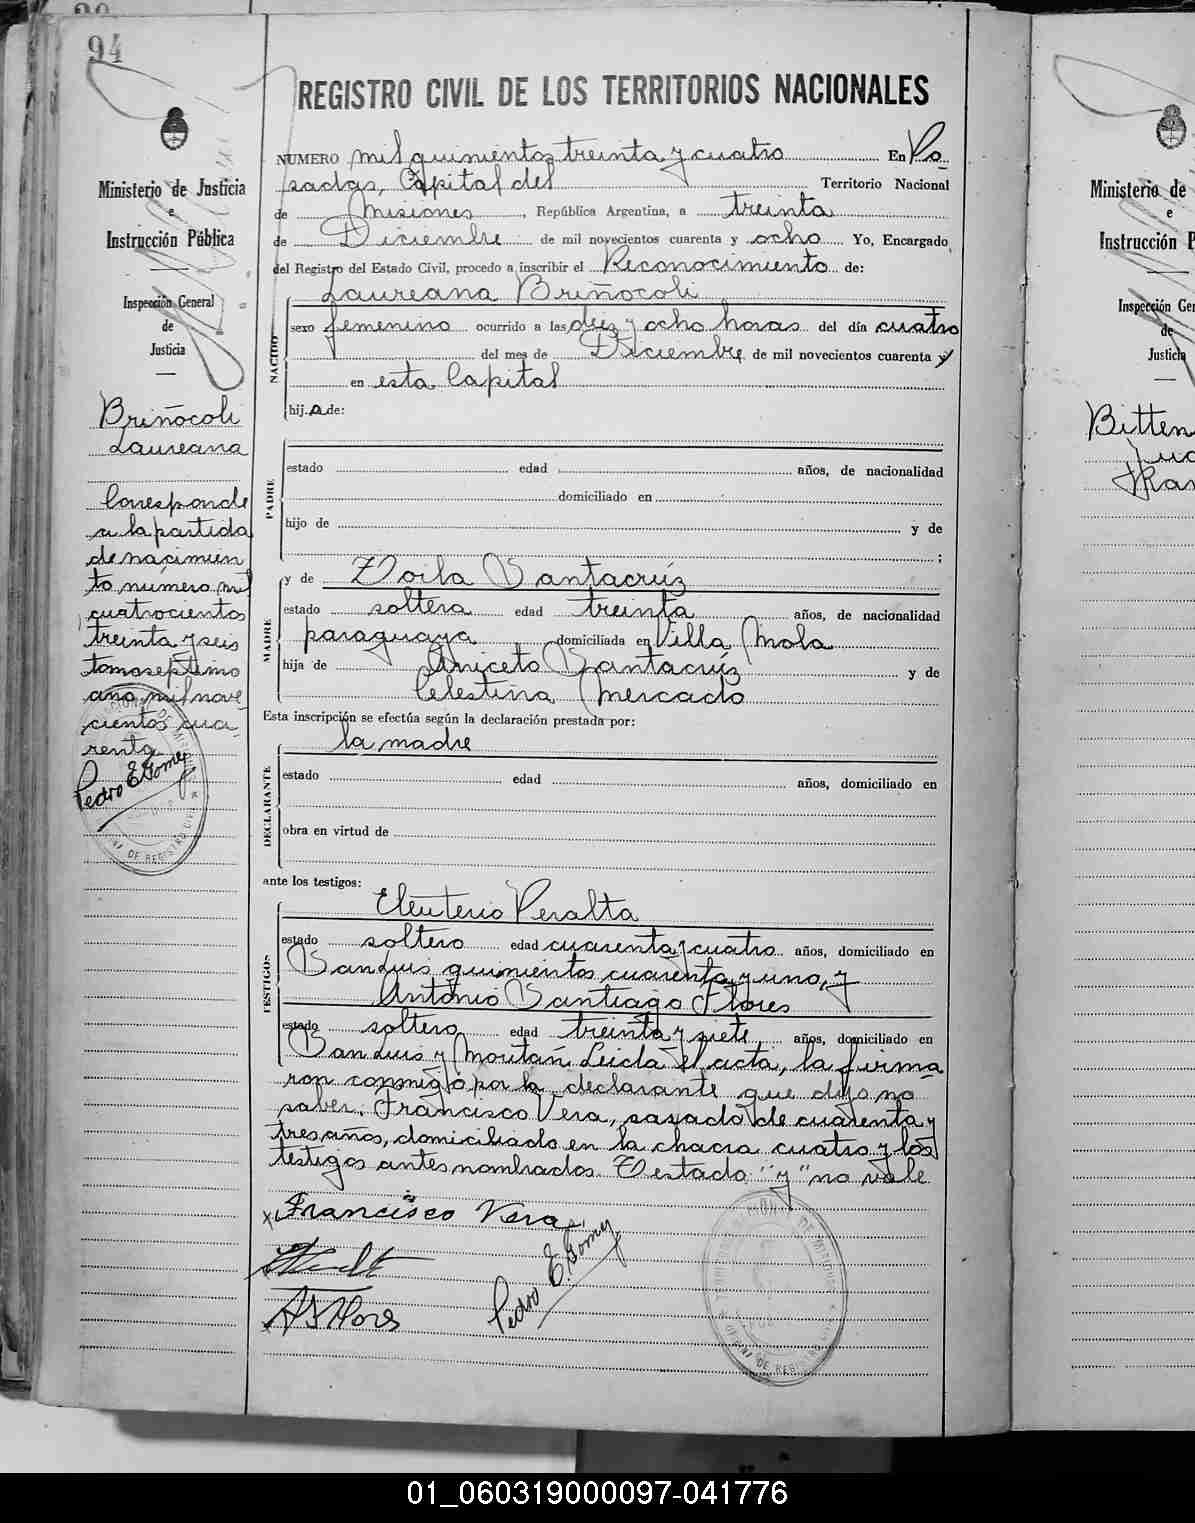 94
REGISTRO CIVIL DE LOS TERRITORIOS NACIONALES
Ministerio de Justicia
e
Instrucción Pública
Inspección General
de
Justicia
Briñocoli
Laureana
Corresponde
a la partida
de nacimien
to numero mil
cuatrocientos
treinta y seis
tomo septimo
año mil nove
cientos cua-
renta
Pedro E. Gomez
NUMERO mil quinientos treinta y cuatro En Po
sadas, Capital del Territorio Nacional
de Misiones, República Argentina, a treinta
de Diciembre de mil novecientos cuarenta y ocho Yo, Encargado
del Registro del Estado Civil, procedo a inscribir el Reconocimiento de:
Laureana Briñocoli
NACIDO
sexo femenino ocurrido a las diez y ocho horas del día cuatro
del mes de Diciembre de mil novecientos cuarenta y
en esta Capital
hij.a de:
PADRE
estado edad años, de nacionalidad
domiciliado en
hijo de y de
;
MADRE
y de Zoila Santacruz
estado soltera edad treinta años, de nacionalidad
paraguaya domiciliada en Villa Mola
hija de Aniceto Santacruz y de
Celestina Mercado
Esta inscripción se efectúa según la declaración prestada por:
la madre
DECLARANTE
estado edad años, domiciliado en
obra en virtud de
ante los testigos:
Eleuterio Peralta
TESTIGOS
estado soltero edad cuarenta y cuatro años, domiciliado en
San Luis quinientos cuarenta y uno, y
Antonio Santiago Flores
estado soltero edad treinta y siete años, domiciliado en
San Luis y Moritán Leida el acta, la firma
ron conmigo por la declarante que dijo no
saber, Francisco Vera, casado de cuarenta y
tres años, domiciliado en la chacra cuatro y los
testigos antes nombrados. Testado "y" no vale
x Francisco Vera
Pedro E. Gomez
A S Flores
DE REGISTRO CIVIL
Ministerio de
e
Instrucción P
Inspección Gen
de
Justicia
Bitten
01_060319000097-041776